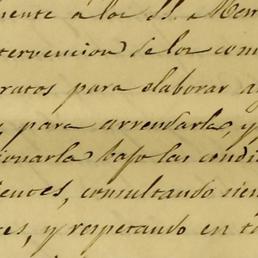 mente a los SS. Mem
tervencion de los com
ratos para elaborar a
, para arrendarla, y
ionarla bajo las condi
ientes, consultando siem
es, y respetando en to